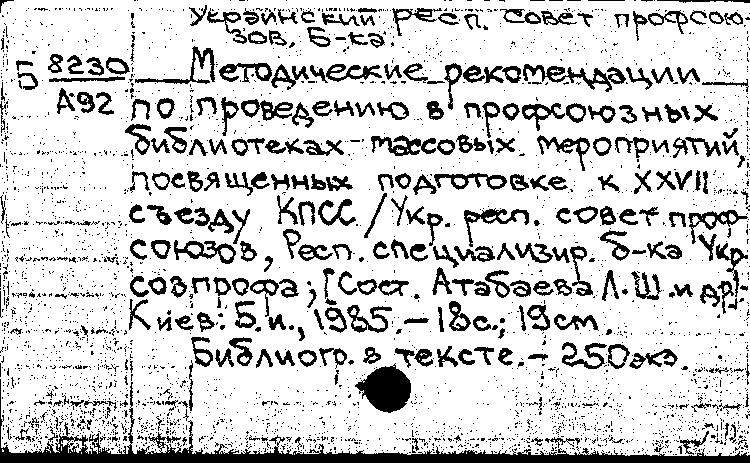 Украинский респ. совет профсою-
зов. Б-ка.
Б 8230 Методические рекомендации
А92 по проведению в профсоюзных
библиотеках массовых мероприятий,
посвященных подготовке к XXVII
съезду КПСС / Укр. респ. совет проф-
союзов, Респ. специализир. б-ка Укр-
совпрофа; [Сост. Атабаева Л.Ш. и др].-
Киев: Б.и., 1985. - 18с.; 19см.
Библиогр. в тексте. - 250экз.